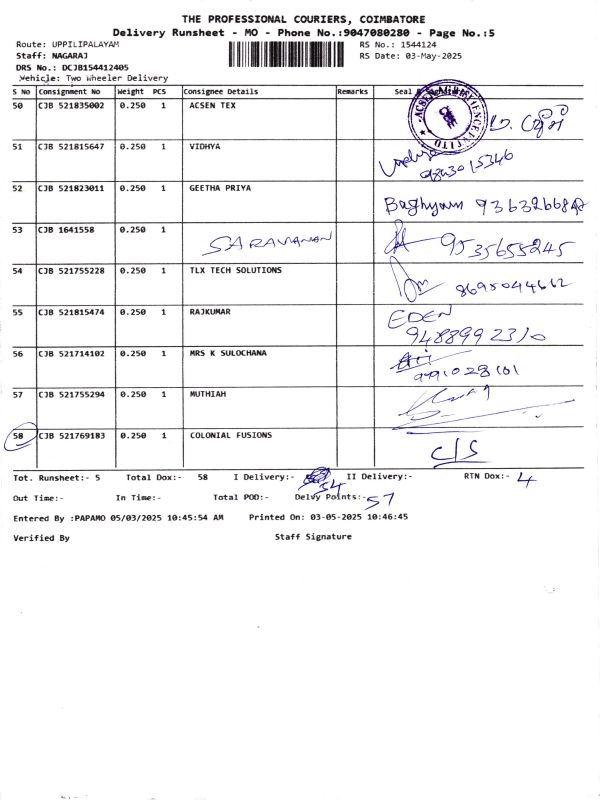 THE PROFESSIONAL COURIERS, COIMBATORE
Delivery Runsheet - MO - Phone No.:9047080280 - Page No.:5
Route: UPPILIPALAYAM RS No.: 1544124
Staff: NAGARAJ RS Date: 03-May-2025
DRS No.: DCJB154412405
Vehicle: Two Wheeler Delivery
S No Consignment No Weight PCS Consignee Details Remarks Seal &
50 CJB 521835002 0.250 1 ACSEN TEX
51 CJB 521815647 0.250 1 VIDHYA Vidhya 9843015346
52 CJB 521823011 0.250 1 GEETHA PRIYA Baghyam
53 CJB 1641558 0.250 1 SARAVANAN 9535655245
54 CJB 521755228 0.250 1 TLX TECH SOLUTIONS 8695044662
55 CJB 521815474 0.250 1 RAJKUMAR EDEN
9488992310
56 CJB 521714102 0.250 1 MRS K SULOCHANA
57 CJB 521755294 0.250 1 MUTHIAH
58 CJB 521769183 0.250 1 COLONIAL FUSIONS C/S
Tot. Runsheet:- 5 Total Dox:- 58 I Delivery:- 54 II Delivery:- RTN Dox:- 4
Out Time:- In Time:- Total POD:- Delvy Points:- 57
Entered By :PAPAMO 05/03/2025 10:45:54 AM Printed On: 03-05-2025 10:46:45
Verified By Staff Signature